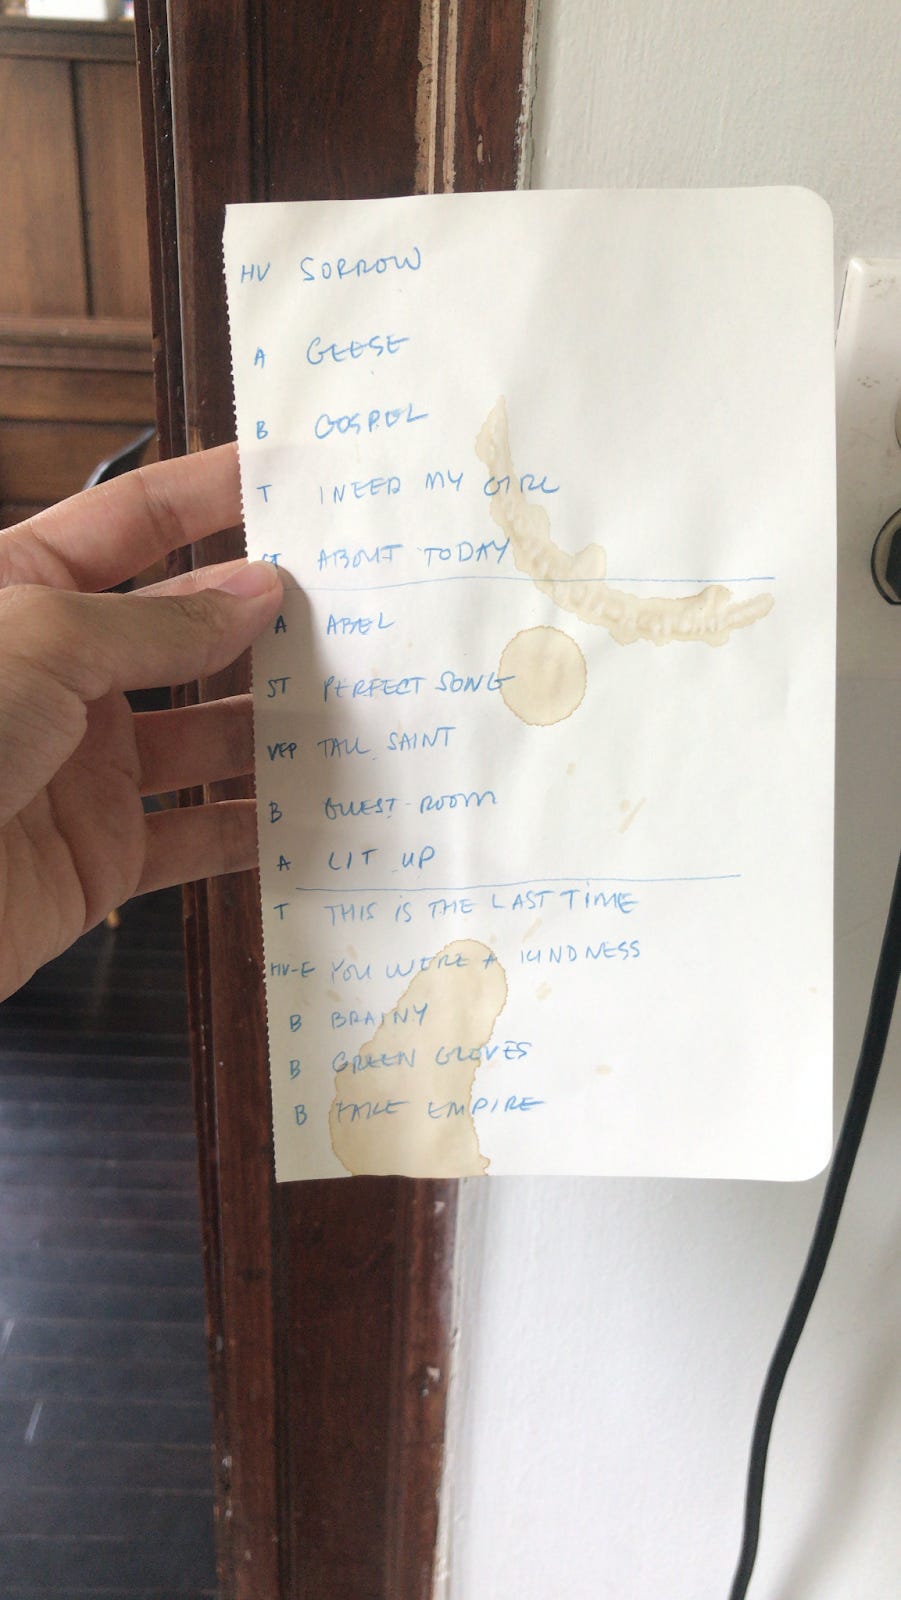 HV SORROW
A GEESE
B GOSPEL
T I NEED MY GIRL
ST ABOUT TODAY
A ABEL
ST PERFECT SONG
VEP TALL SAINT
B GUEST ROOM
A LIT UP
T THIS IS THE LAST TIME
HV-E YOU WERE A KINDNESS
B BRAINY
B GREEN GLOVES
B FAKE EMPIRE